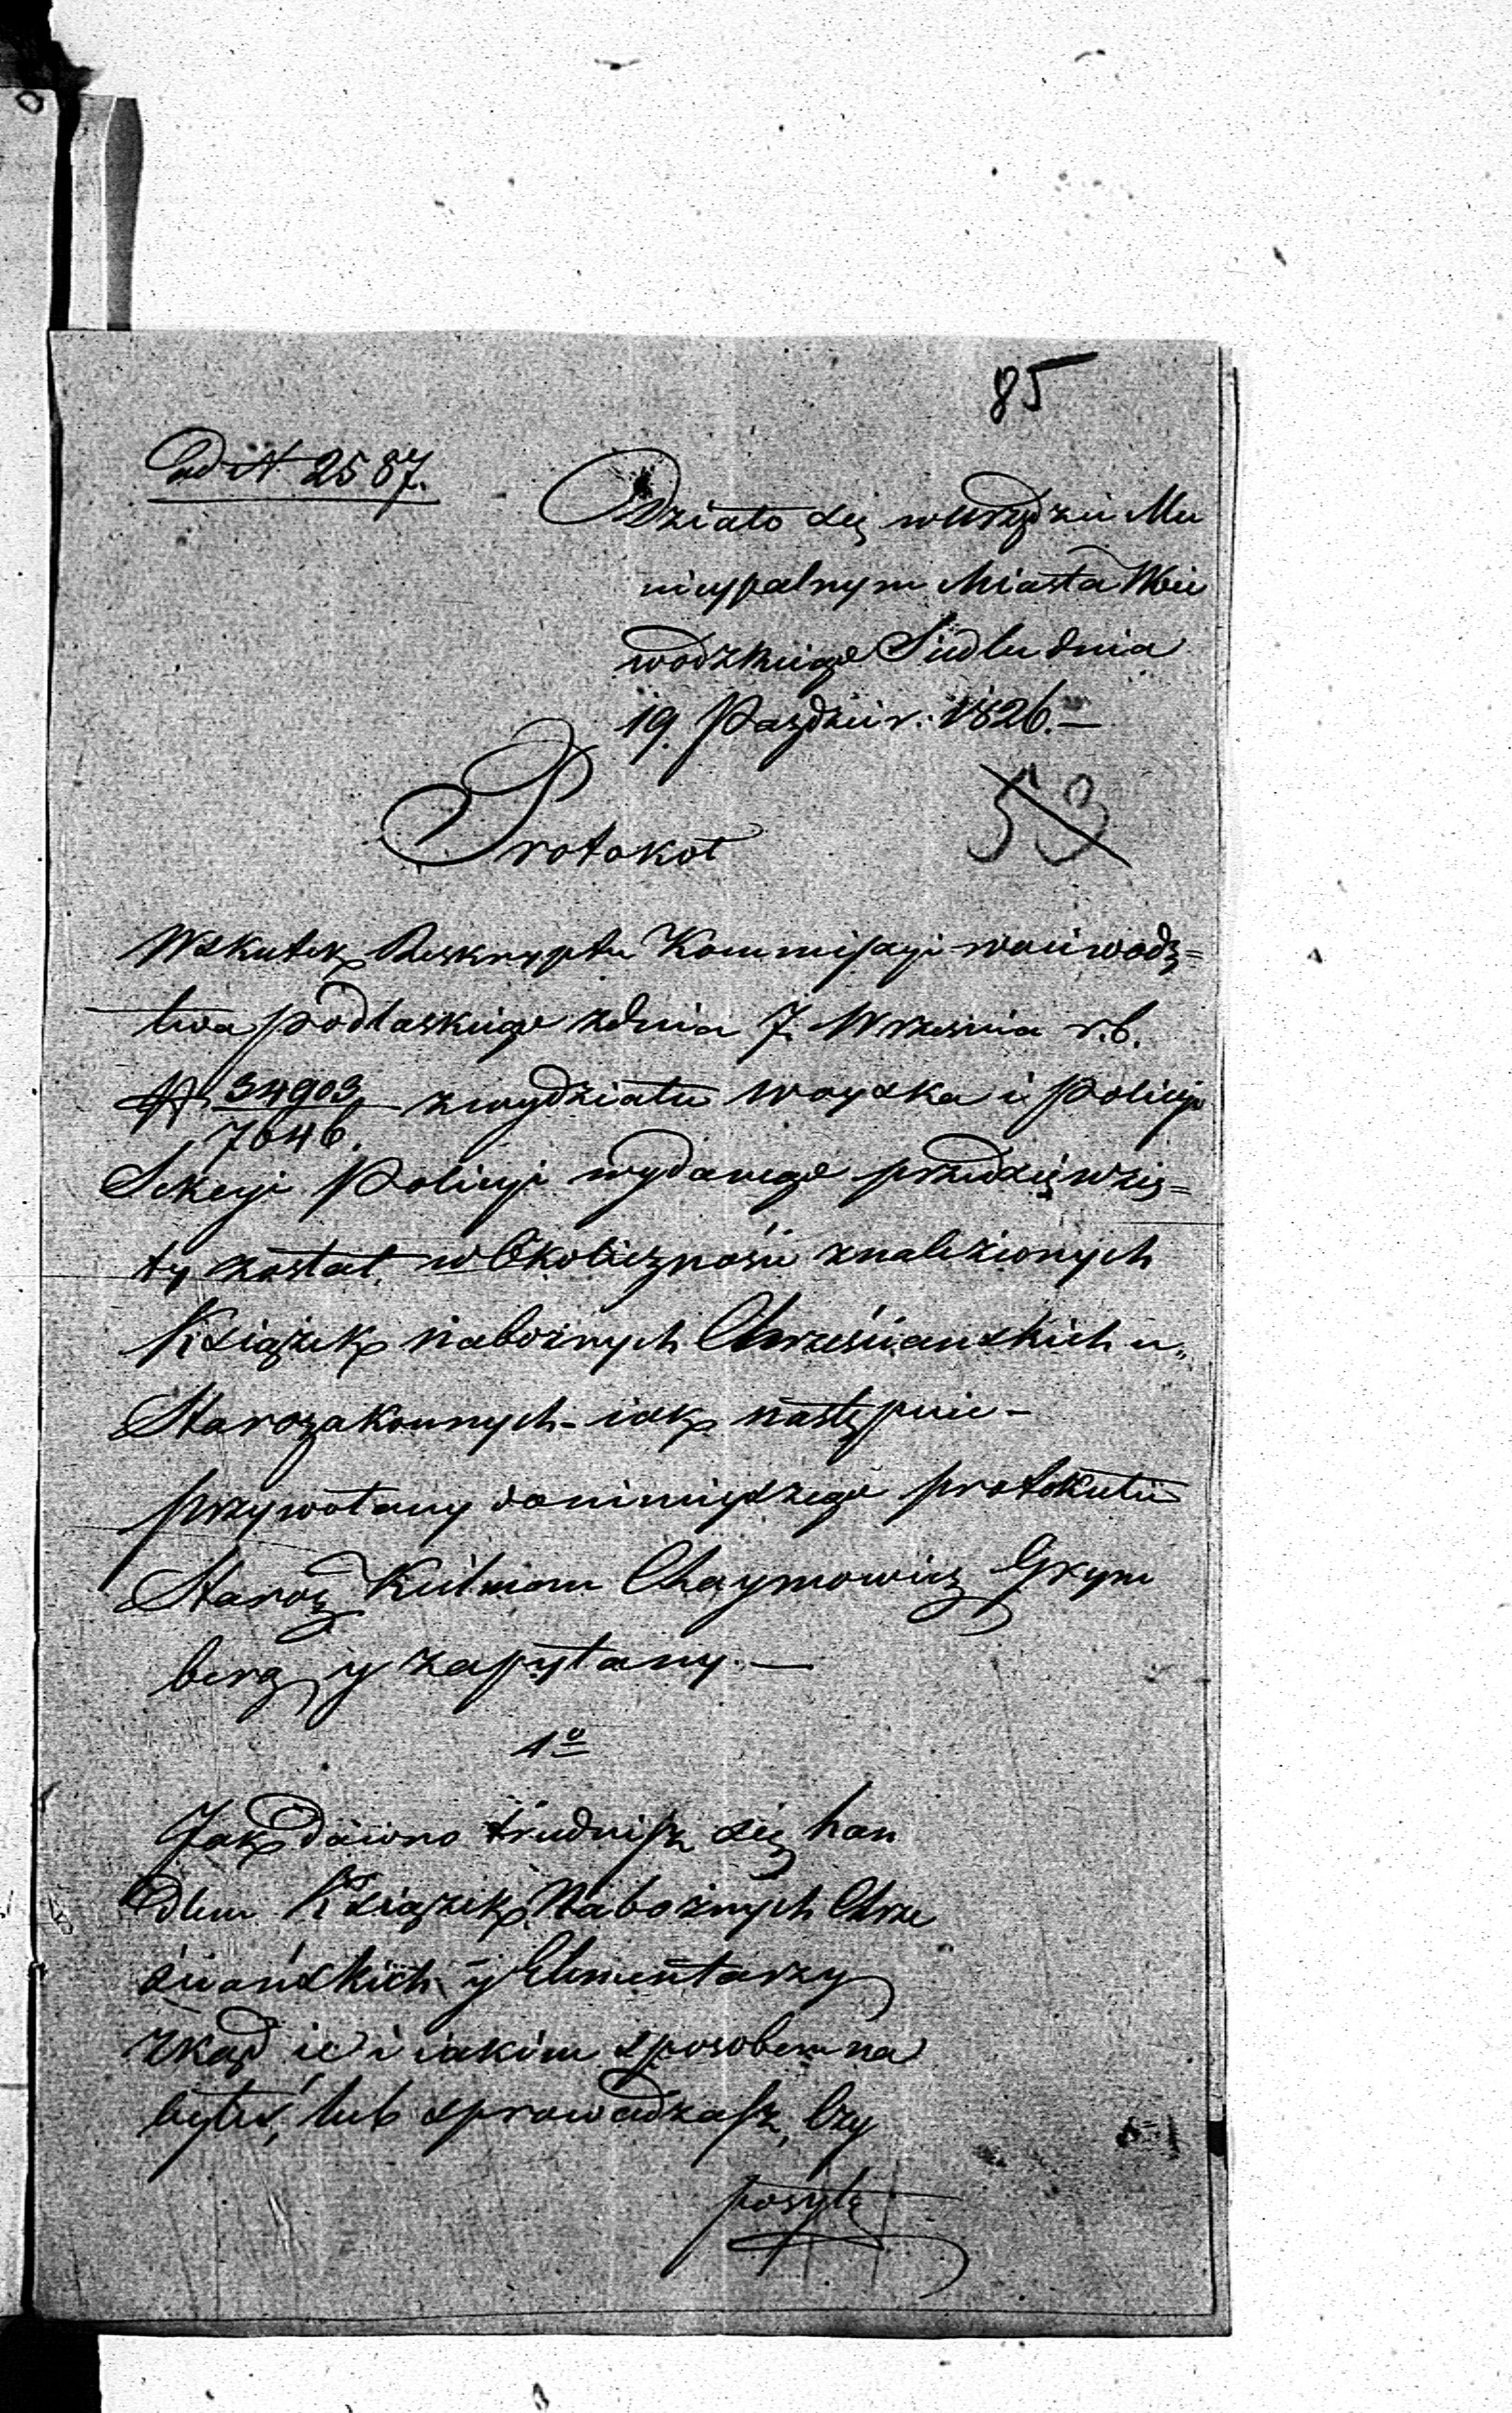 85
ad N 2587.
Działo się w urzędzie Mu
nicypalnym Miasta Woie
wodzkiego Siedlce dnia
19. Pazdzier. 1826.—
53
Protokoł
Wskutek Reskryptu Kommissyi woiewodz=
twa podlaskiego z dnia 7. Września r.b.
N 34903/7646. z wydziału woyska i Policyi
Sekcyi Policyi wydanego przedsięwzię=
ty został w Okoliczności znalezionych
Książek nabożnych Chrześciańskich u
Starozakonnych - iak następuie -
przywołany do ninieyszego protokułu
Staroz Kielman Chaymowicz Grym
berg y zapytany. —
1o
Jak dawno trudnisz się han
dlem Książek Nabożnych Chrze
ściańskich y Elementarzy
zkąd ie i iakim sposobem na
byłeś, lub sprowadzasz, Czy
posyłę